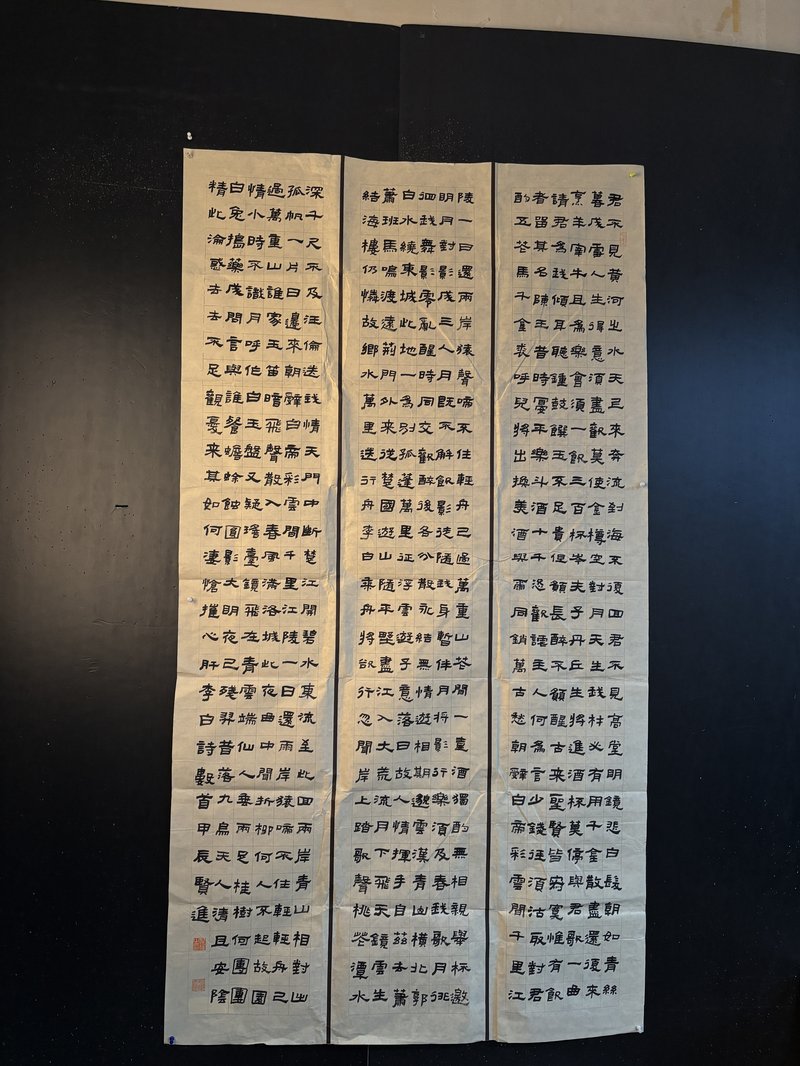 君不見黃河之水天上來奔流到海不復回君不見高堂明鏡悲白髮朝如青絲
暮成雪人生得意須盡歡莫使金樽空對月天生我材必有用千金散盡還復來
烹羊宰牛且為樂會須一飲三百杯岑夫子丹丘生將進酒杯莫停與君歌一曲
請君為我傾耳聽鐘鼓饌玉不足貴但願長醉不願醒古來聖賢皆寂寞惟有飲
者留其名陳王昔時宴平樂斗酒十千恣歡謔主人何為言少錢徑須沽取對君
酌五花馬千金裘呼兒將出換美酒與爾同銷萬古愁朝辭白帝彩雲間千里江
陵一日還兩岸猿聲啼不住輕舟已過萬重山花間一壺酒獨酌無相親舉杯邀
明月對影成三人月既不解飲影徒隨我身暫伴月將影行樂須及春我歌月徘
徊我舞影零亂醒時同交歡醉後各分散永結無情遊相期邈雲漢青山橫北郭
白水繞東城此地一為別孤蓬萬里征浮雲遊子意落日故人情揮手自茲去蕭
蕭班馬鳴渡遠荊門外來從楚國遊山隨平野盡江入大荒流月下飛天鏡雲生
結海樓仍憐故鄉水萬里送行舟李白乘舟將欲行忽聞岸上踏歌聲桃花潭水
深千尺不及汪倫送我情天門中斷楚江開碧水東流至此回兩岸青山相對出
孤帆一片日邊來朝辭白帝彩雲間千里江陵一日還兩岸猿啼不住輕輕舟已
過萬重山誰家玉笛暗飛聲散入春風滿洛城此夜曲中聞折柳何人不起故園
情小時不識月呼作白玉盤又疑瑤臺鏡飛在青雲端仙人垂兩足桂樹何團團
白兔搗藥成問言與誰餐蟾蜍蝕圓影大明夜已殘羿昔落九烏天人清且安陰
精此淪惑去去不足觀憂來其如何淒愴摧心肝李白詩數首甲辰賢進